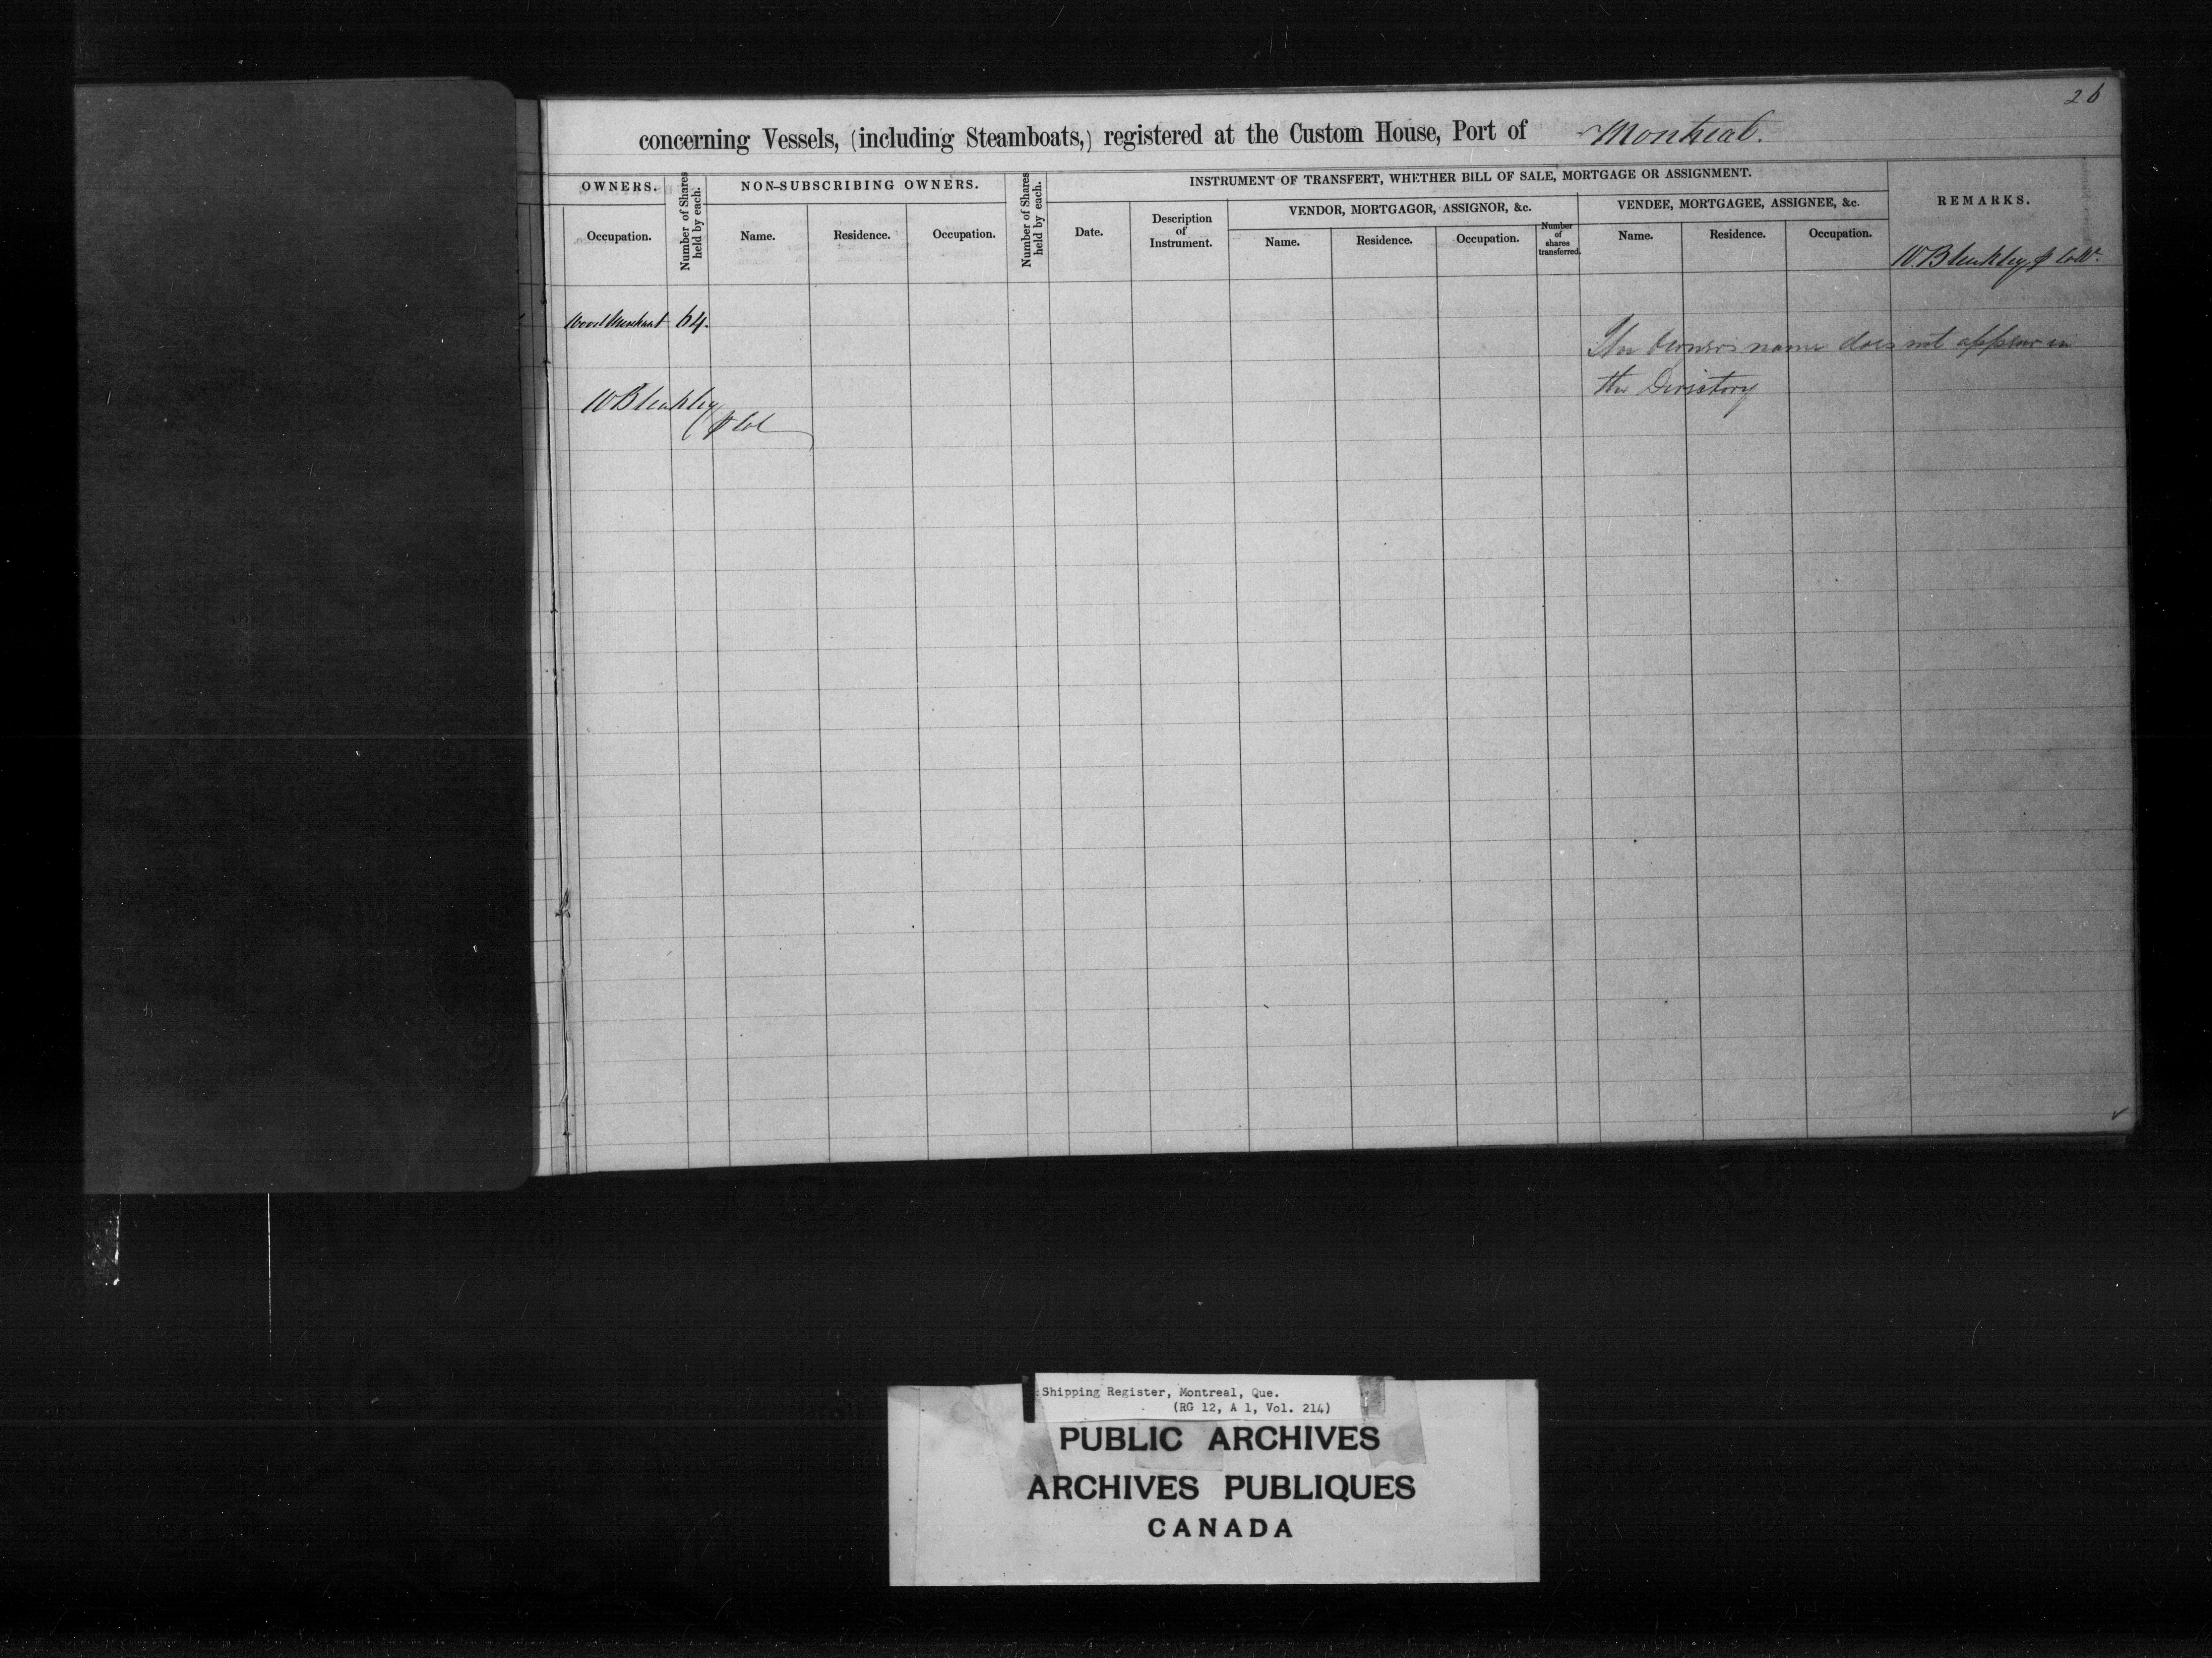 26
concerning Vessels, (including Steamboats,) registered at the Custom House, Port of Montreal.
OWNERS.
Number of Shares held by each.
NON-SUBSCRIBING OWNERS.
Number of Shares held by each.
INSTRUMENT OF TRANSFERT, WHETHER BILL OF SALE, MORTGAGE OR ASSIGNMENT.
REMARKS.
Occupation.
Name.
Residence.
Occupation.
Date.
Description
of
Instrument.
VENDOR, MORTGAGOR, ASSIGNOR, &c.
VENDEE, MORTGAGEE, ASSIGNEE, &c.
Name.
Residence.
Occupation.
Number
of
shares
transferred.
Name.
Residence.
Occupation.
W. Bleakley p Collr.
Wood Merchant 64.
The Owners name does not appear in
the Directory
W Bleakley
p Col
Shipping Register, Montreal, Que.
(RG 12, A 1, Vol. 214)
PUBLIC ARCHIVES
ARCHIVES PUBLIQUES
CANADA